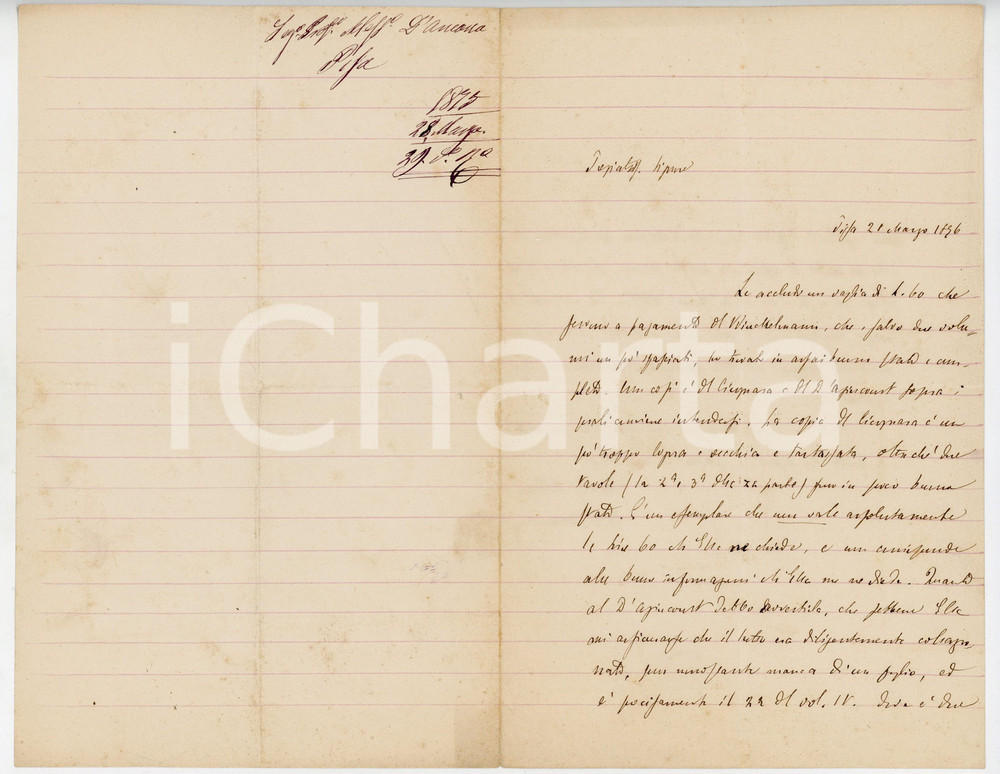 Sigr. Profr. Alessro. D'Ancona
Pisa
1875
28. Marzo.
29. do. Ra
iCharta
Pisa 21 Marzo 1876
Le accludo un vaglia di L. 60 che
servono a pagamento del Winckelmann, che, salvo due volu-
mi un po' sciupati, ho trovato in assai buono stato e com-
pleto. Non così è del Cicognara e del D'Agincourt sopra i
quali conviene intendersi. La copia del Cicognara è un
po' troppo logora e vecchia e tartassata, oltreché due
tavole (la 2a e 3a della 2a parte) sono in poco buono
stato. È un esemplare che non vale assolutamente
le lire 60 ch'Ella ne chiede, e non corrisponde
alle buone informazioni ch'Ella me ne diede. Quanto
al D'Agincourt debbo avvertirla, che sebbene Ella
mi assicurasse che il tutto era diligentemente collazio-
nato, pure nonostante manca di un foglio, ed
è precisamente il 22 del vol. IV. dove è due